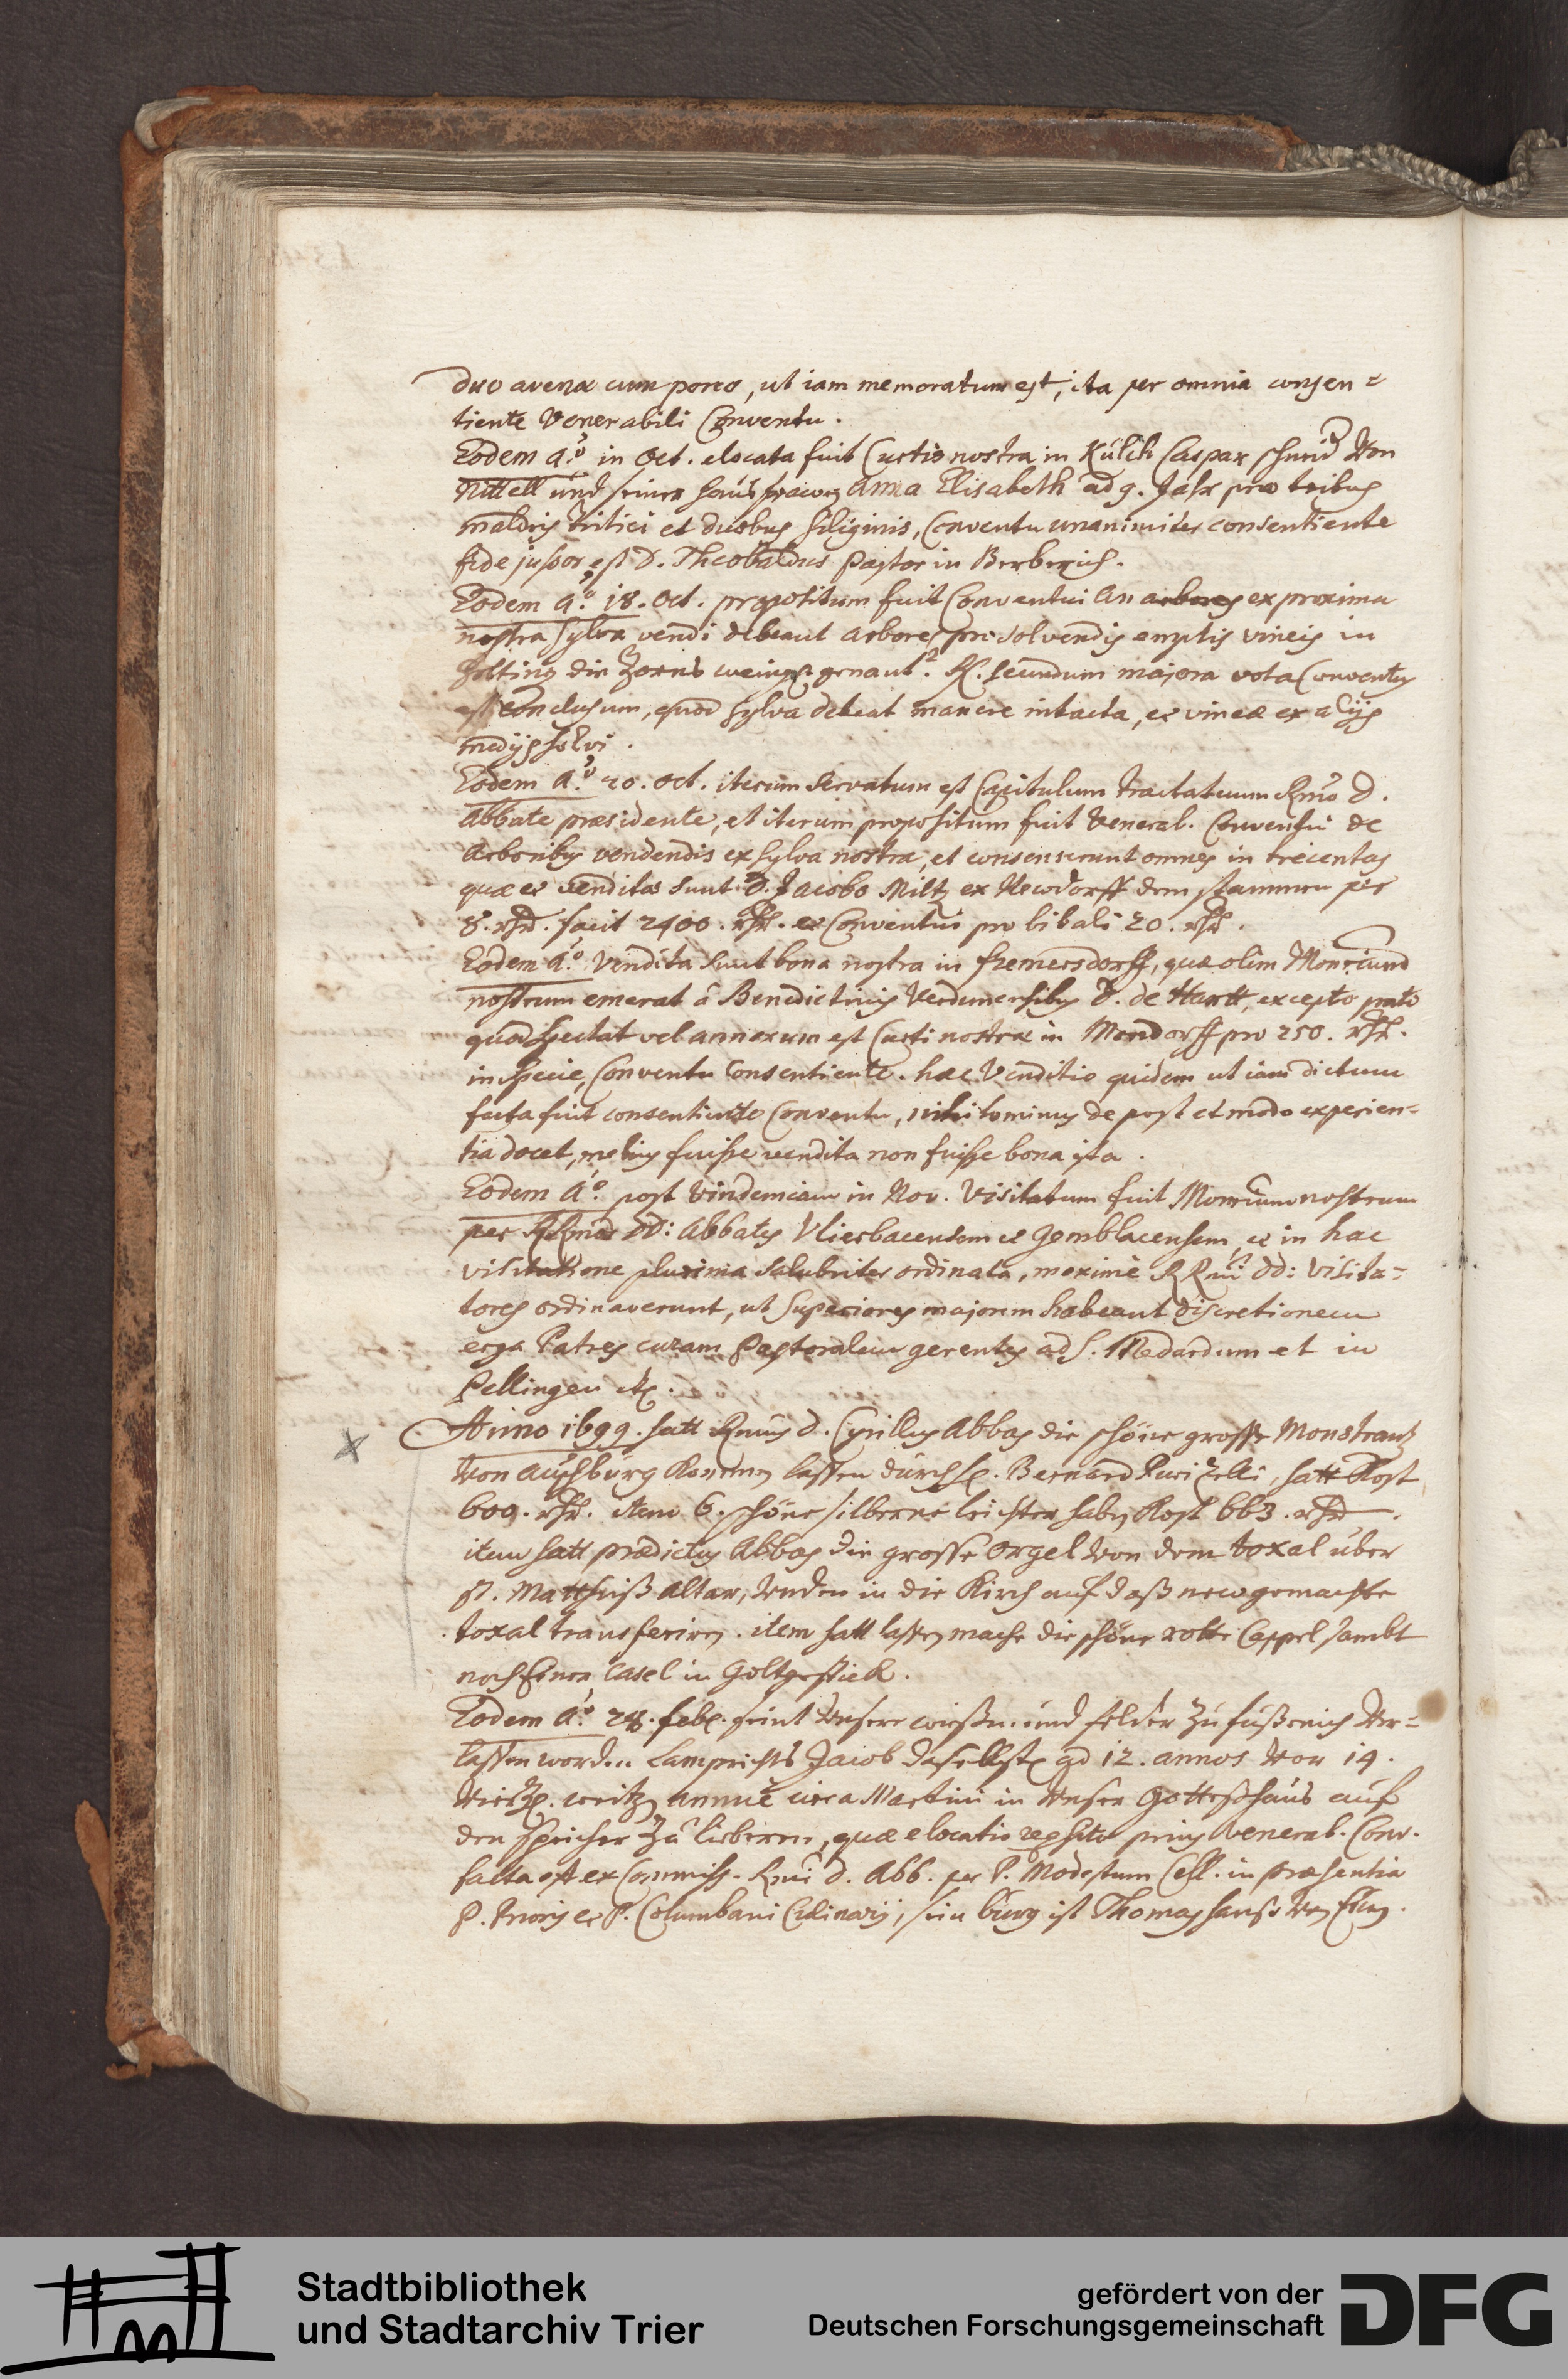 duo avenæ cum porco, ut iam memoratum est, ita per omnia consen=
tiente Venerabili Conventu.
Eodem a.o in Oct. elocata fuit Curtis nostra in Külch Caspar schmid Von
Nittell und seiner haus frawen Anna Elisabeth ad 9. Jahr pro tribus
maldris tritici et duobus siliginis, Conventu unanimiter consentiente
fide jussor est D. Theobaldus Pastor in Berberich.
Eodem a.o 18. Oct. propositum fuit Conventui an arbores ex proxima
nostra sylva vendi debeant arbores pro solvendis emptis vineis in
die Zorns genant? R. secundum majora vota Conventus
est conclusum, quod sylva debeat manere intacta, et vineæ ex alijs
medijs solvi.
Eodem A.o 20. Oct. iterum servatum est Capitulum tractatuum Rmo D.
Abbate præsidente, et iterum propositum fuit Venerab. Conventui de
Arboribus vendendis ex sylva nostra, et consenserunt omnes in trecentas
quæ et venditæ sunt D. Jacobo Miltz ex Newdorff den stammen per
8. rthr. facit 2400. rthr. et Conventui pro bibali 20. rthr.
Eodem a.o Vendita sunt bona nostra in fremersdorff, quæ olim Monrium
nostrum emerat à Benedictinis Verdunensibus D. de Hartt, excepto prato
quod spectat vel annexum est Curti nostræ in Mondorff pro 250. rthr.
in specie, Conventu Consentiente. hæc Venditio quidem ut iam dictum
facta fuit consentiente Conventu, nihilominus de post et modo experien=
tia docet, melius fuisse vendita non fuisse bona ista.
Eodem A.o post Vindemiam in Nov. Visitatum fuit Monrium nostrum
per RRmos DD: Abbates Vlierbacensem et Gemblacensem, et in hac
visitatione plurima salubriter ordinata, maxime RRmi dd: Visita=
tores ordinaverunt, ut Superiores majorem habeant discretionem
erga Patres curam Pastoralem gerentes ad S. Medardum et in
Pellingen etc.
Anno 1699. hatt Rmus d. Cyrillus Abbas die schöne grosse Monstrantz
Von Augsburg Kommen lassen durch H. Bernard, hatt Kost
609. rthr. item 6. schöne silberne leichter haben Kost 663. rthr.
item hatt prædictus Abbas die grosse Orgel Von dem toxal über
St. Matthiß Altar, unden in die Kirch auf daß new gemachte
toxal transferiren. item hatt lassen mache die schöne rotte Cappel sambt
noch Einer Casel in Goltgestick.
Eodem A.o 28. feb. seint Unsere wießen und felder Zu fußenich Ver=
lassen worden Lamprichts Jacob daselbst ad 12. annos Vor 14.
weitz annuè circa Martini in Unser Gotteßhaus auf
den speicher Zu lieberen, quæ elocatio reposito prius Venerab. Conv.
facta est ex Commiss. Rmi d. Abb. per P. Modestum Cell. in præsentia
P. Prioris et P. Columbani Culinarij, sein burg ist Thomas
Stadtbibliothek
und Stadtarchiv Trier
gefördert von der
Deutschen Forschungsgemeinschaft
DFG